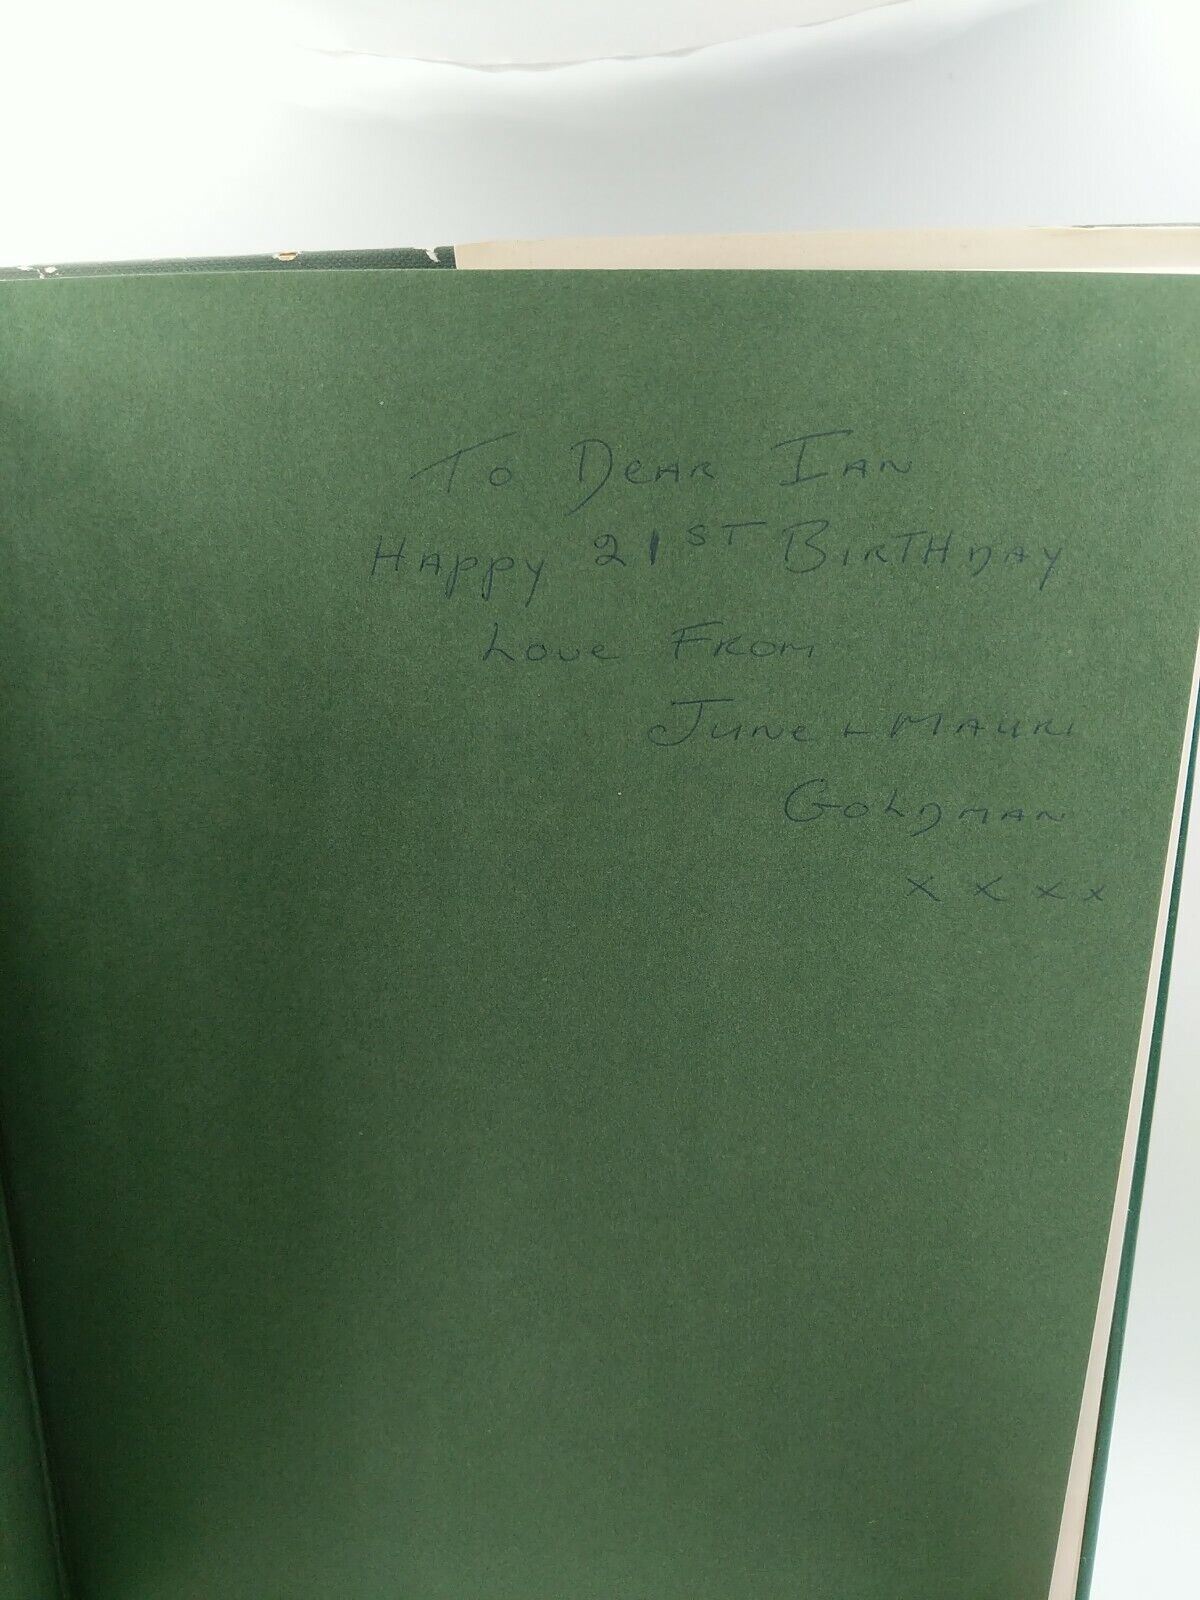 To Dear Ian
Happy 21ST Birthday
Love From
June & Mauri
Goldman
x x x x